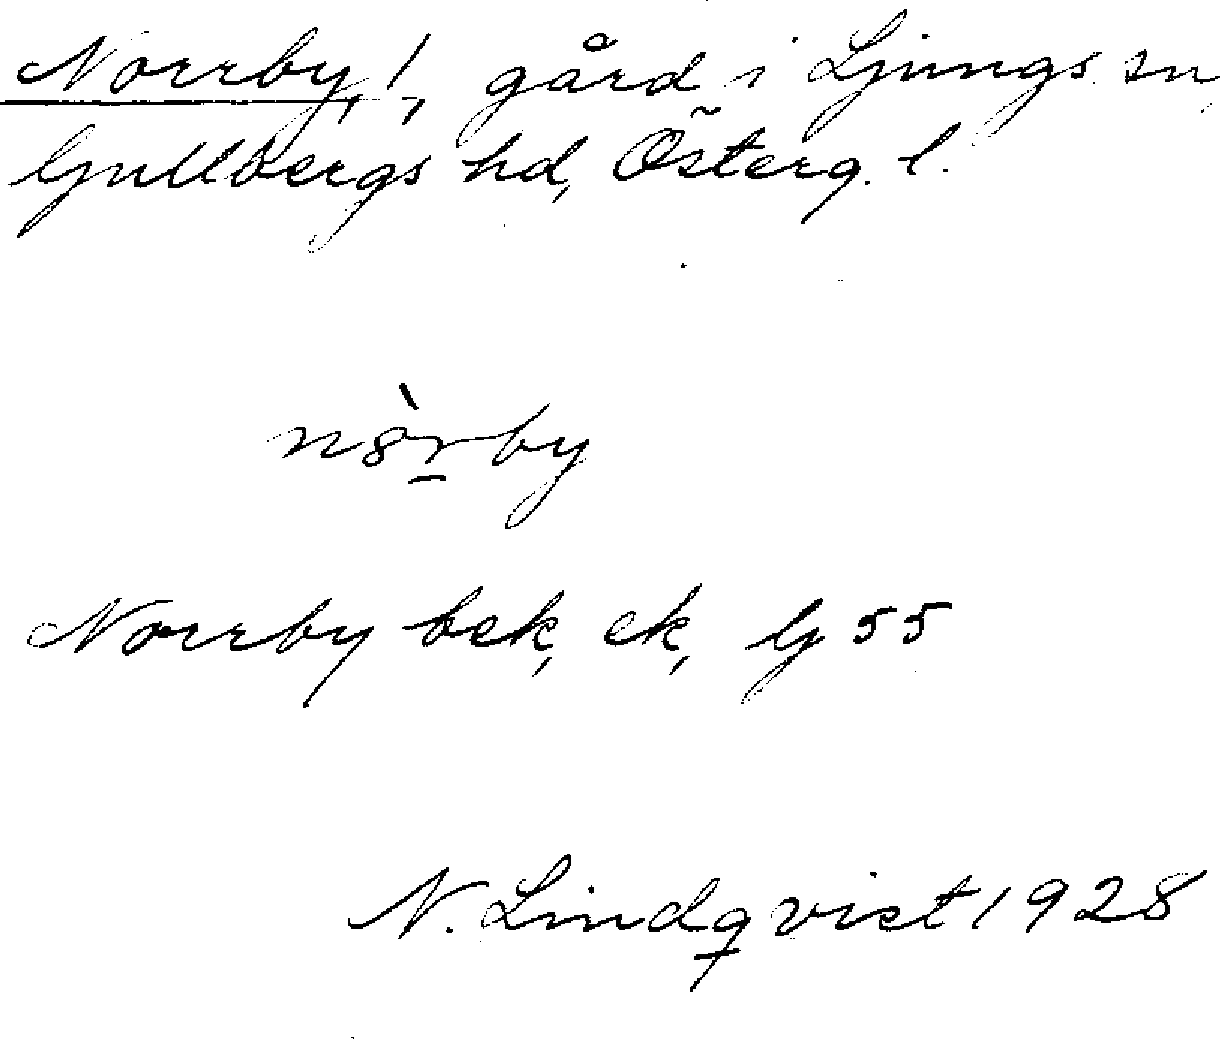 Norrby, !, gård i Ljungs sn,
Gullbergs hd, Österg. l.
nòr̲by
Norrby bek, ek, G 55
N. Lindqvist 1928